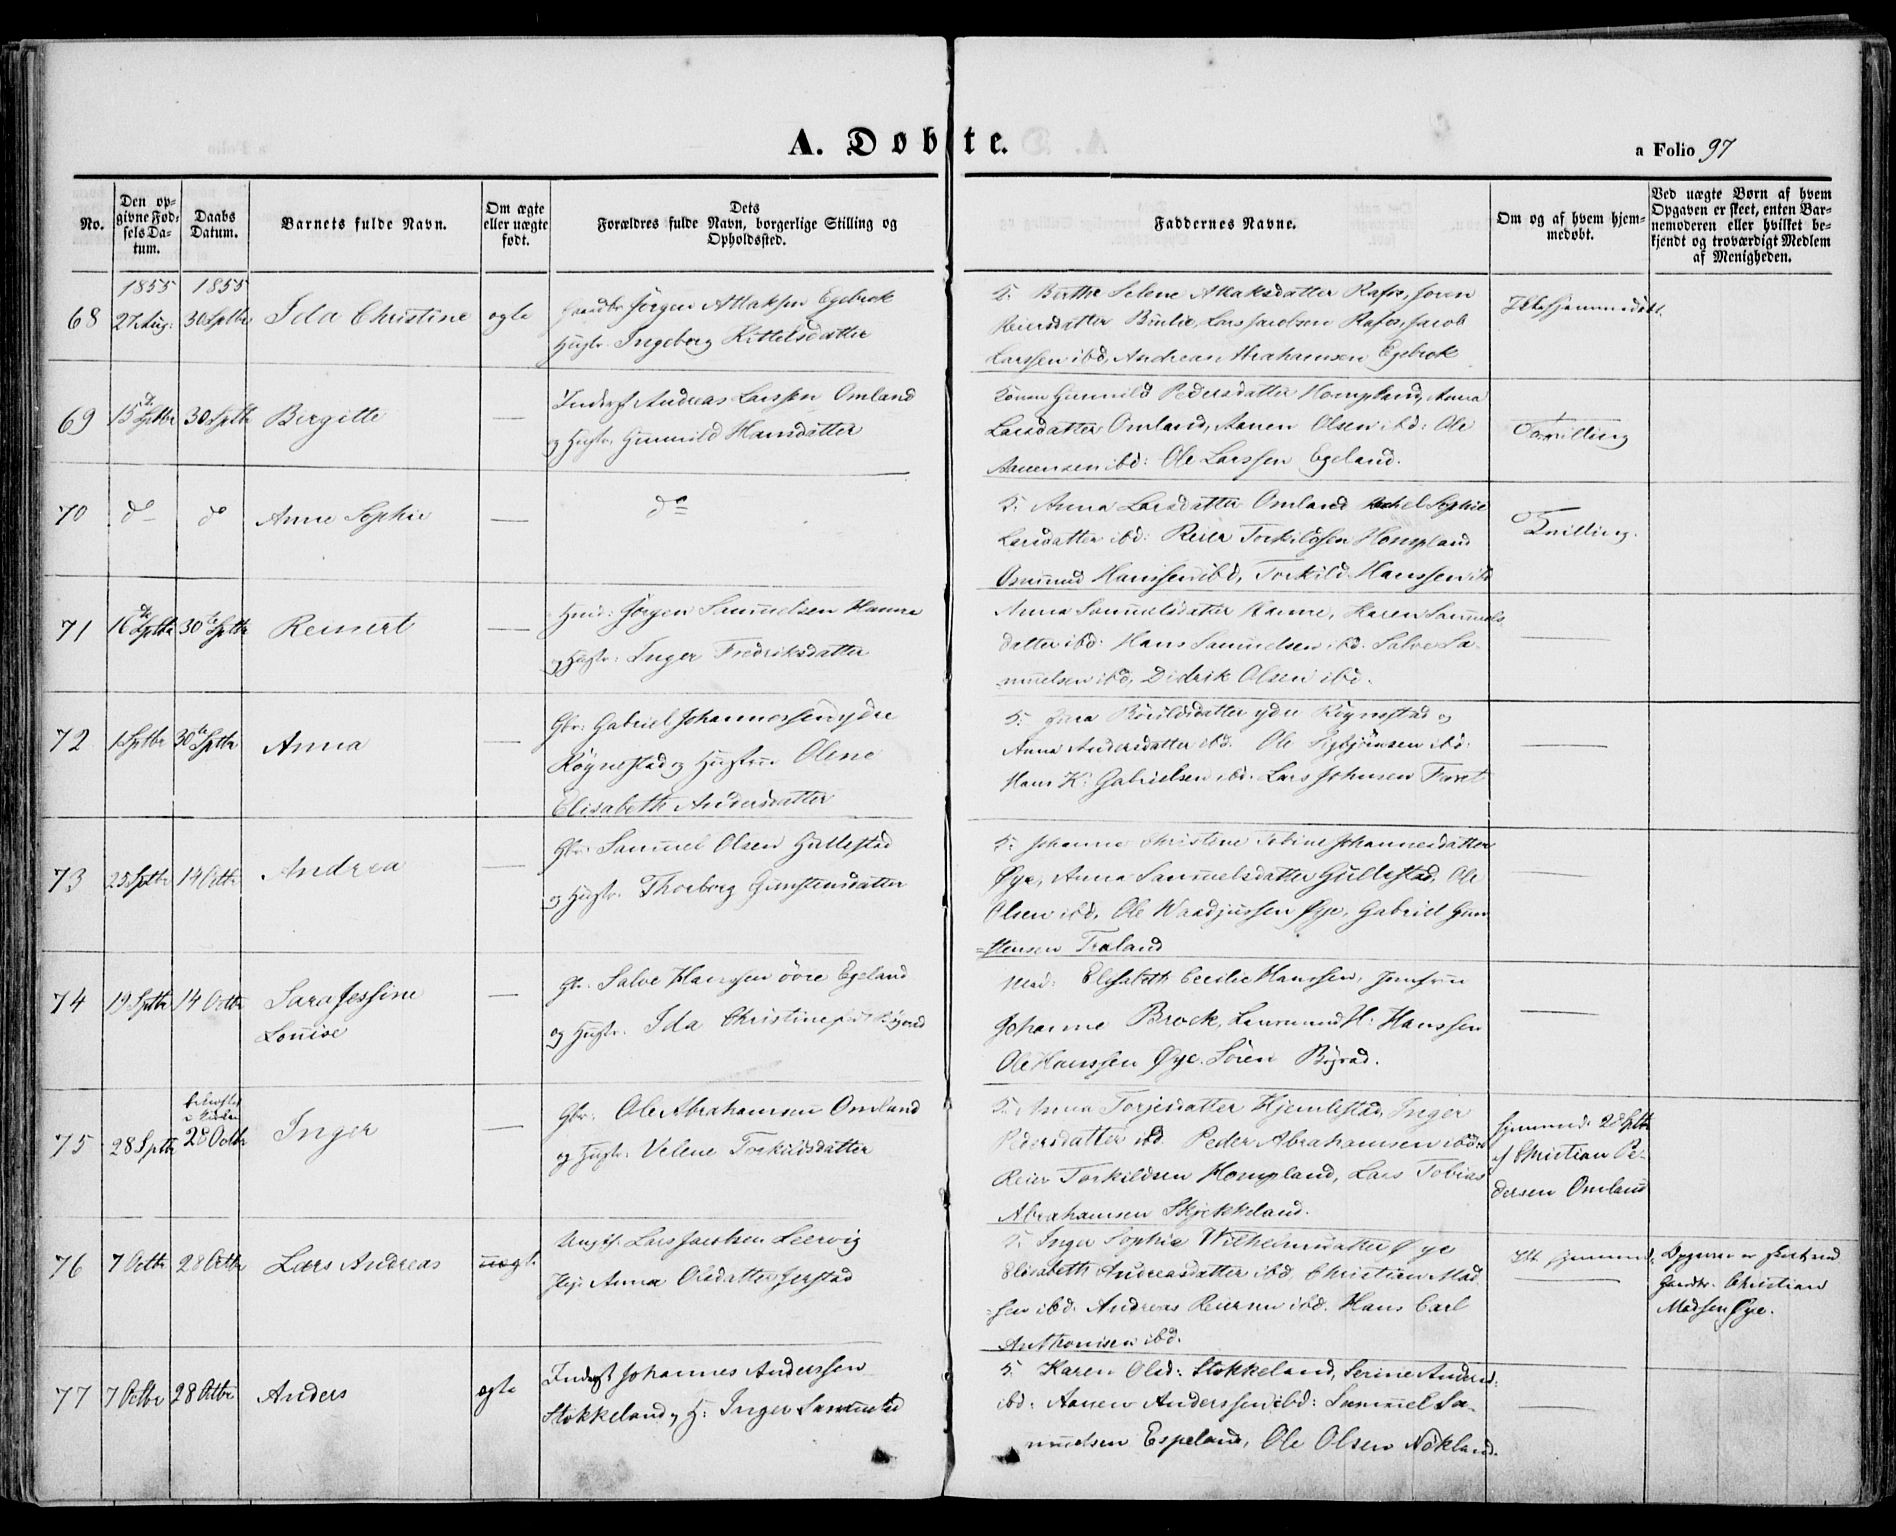 A. Døbte.
a Folio 97
No.
Den op-
givne Fød-
sels Da-
tum.
Daabs
Datum.
Barnets fulde Navn.
Om ægte
eller uægte
født.
Dets
Forældres fulde Navn, borgerlige Stilling og
Opholdssted.
Faddernes Navne.
Om og af hvem hjem-
medøbt.
Ved uægte Børn af hvem
Opgaven er skeet, enten Bar-
nemoderen eller hvilket be-
kjendt og troværdigt Medlem
af Menigheden.
1855 1855
68 27 Aug. 30 Sptbr Ida Christine ægte
Jørgen Attaksen Egebrok
Hustr. Ingeborg Kittelsdatter
F. Berthe Selene Attaksdatter Rafos, Søren
Reiersdatter Birlie, Lars Jacobsen Rafos, Jacob
Larssen ibd, Andreas Abrahamsen Egebrok
Ikke hjemmedøbt.
69 15de Sptbr 30 Sptbr Birgitte —
Inderst Andreas Larssen Omland
og Hustr. Gunnild Hansdatter
Konen Gunnild Pedersdatter Hompland, Anna
Larsdatter Omland, Aanen Olsen ibd: Ole
Aanensen ibd: Ole Larssen Egeland.
Tvilling
70 do do Anne Sophie —
do
F. Anna Larsdatter Omland Rachel Sophie
Larsdatter ibd: Reier Torkildsen Hompland
Osmund Hanssen ibd, Torkild Hanssen ibd
Tvilling.
71 16de Sptbr 30te Sptbr Reinert —
Jørgen Samuelsen Hamre
og Hustr: Inger Fredriksdatter
Anna Samuelsdatter Hamre, Karen Samuels
datter ibd: Hans Samuelsen ibd: Salve Sa-
muelsen ibd, Didrik Olsen ibd.
72 1 Sptbr 30te Sptbr Anna —
Gbr: Gabriel Johannessen ydre
Røynestad og Hustrue Olene
Elisabeth Andersdatter
F. ydre Røynestad og
Anna Andersdatter ibd. Ole Sigbjørnsen ibd:
Hans K. Gabrielsen ibd. Lars Johnsen Faret
73 25 Sptbr 14 Octbr Andrea —
Gbr. Samuel Olsen Gullestad
og Hustr. Thorborg Gunstensdatter
F. Johanne Christine Sebine Johannesdatter
Øye, Anna Samuelsdatter Gullestad, Ole
Olsen ibd, Ole Øye, Gabriel Gun
=stensen Træland
74 19 Sptbr 14 Octbr Sara Jessine
Louise —
Gbr. Salve Hanssen övre Egeland
og Hustr. Ida Christine født
Mad: Elisabeth Cecilie Hanssen, Jomfrue
Johanne Brock, H. Hanssen
Ole Hanssen Øye. Sören
75 28 Sptbr 28 Octbr Inger —
Gbr. Ole Abrahamsen Omland
og Hustr. Velene Torkildsdatter
F. Anna Torjesdatter Hjemlestad, Inger
Pedersdatter ibd Peder Abrahamsen ibd
Reier Torkildsen Hompland, Lars Tobias
Abrahamsen Skjekkeland.
hjemmed. 28 Sptbr
af Christian Pe-
dersen Omland
76 7 Octbr 28 Octbr Lars Andreas uægte
Ungk. Lars Jacobsen Leervig
Pige Anna Olsdatter Jerstad
F. Inger Sophie Wilhelmsdatter Øye
Elisabeth Andreasdatter ibd, Christian Mad
sen ibd. Andreas Reiersen ibd. Hans Carl
Anthonisen ibd.
Ikke hjemmed.
Opgaven er skeet ved
Gaardbr. Christian
Madsen Øye.
77 7 Octbr 28 Octbr Anders ægte
Inderst Johannes Anderssen
Stokkeland og H: Inger Samuelsd
F. Karen Olsd: Stokkeland, Serine Andersd:
ibd: Aanen Anderssen ibd: Samuel Sa-
muelsen Espeland, Ole Olsen Nøkland.